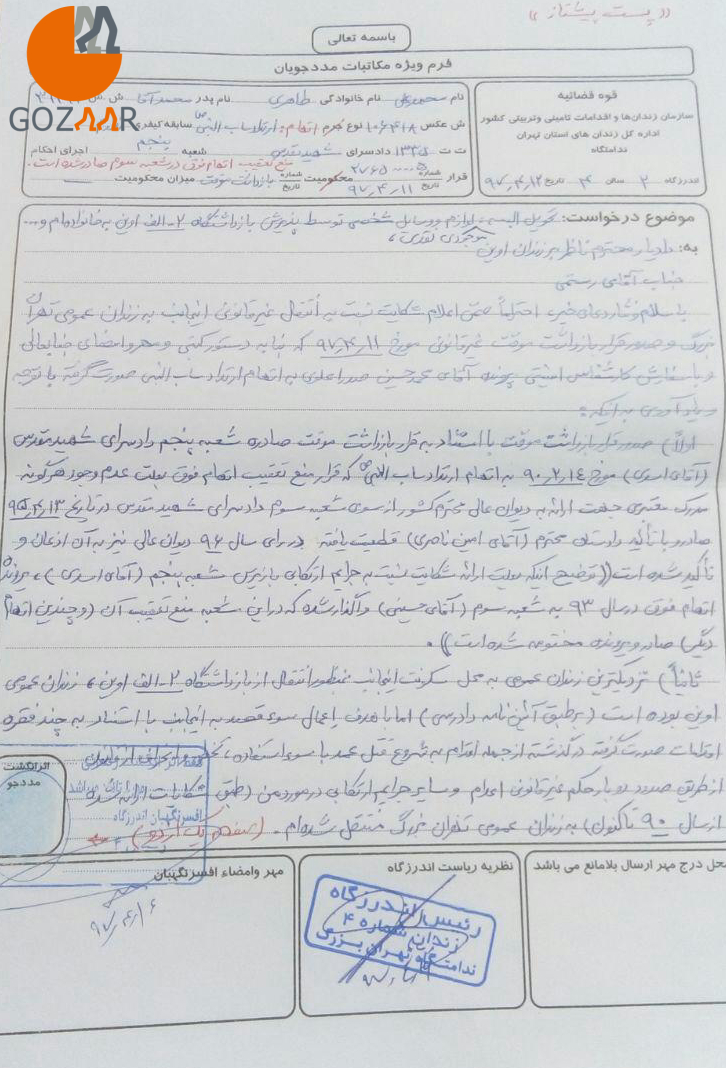 ((پست پیشتاز))
باسمه تعالی
فرم ویژه مکاتبات مددجویان
GOZAAR
قوه قضائیه
سازمان زندان‌ها و اقدامات تامینی وتربیتی کشور
اداره کل زندان های استان تهران
ندامتگاه
اندرزگاه ۲ سالن ۴ تاریخ ۹۷/۴/۱۲
نام محمدعلی نام خانوادگی طاهری نام پدر محمدآقا ش ش
ش عکس ۱۰۶۴۱۸ نوع جرم اتهام: ارتداد ساب النبی سابقه کیفری
ت ت ۱۳۳۵ دادسرای شهید مقدس شعبه پنجم اجرای احکام
منع تعقیب اتهام فوق در شعبه سوم صادر شده است.
قرار شماره تاریخ ۹۷/۴/۱۱ محکومیت شماره تاریخ بازداشت موقت میزان محکومیت
موضوع درخواست: تحویل البسه، لوازم و وسایل شخصی توسط پذیرش بازداشتگاه ۲-الف اوین به خانواده‌ام و...
موجودی نقدی،
به: دادیار محترم ناظر بر زندان اوین
جناب آقای رستمی
با سلام و احتراماً ضمن اعلام شکایت نسبت به انتقال غیرقانونی اینجانب به زندان عمومی تهران
بزرگ و صدور قرار بازداشت موقت غیرقانونی مورخ ۹۷/۴/۱۱ که بنا به دستور کتبی و مهر و امضای جنابعالی
و با سفارش کارشناس امنیتی پرونده آقای محمدحسین به اتهام ارتداد ساب النبی صورت گرفته با توجه
و یادآوری به اینکه:
اولاً) صدور قرار بازداشت موقت با استناد به قرار بازداشت موقت صادره شعبه پنجم دادسرای شهید مقدس
(آقای اسدی) مورخ ۹۰/۲/۱۴ به اتهام ارتداد ساب النبی که قرار منع تعقیب اتهام فوق بعلت عدم وجود هرگونه
مدرک معتبری جهت ارائه به دیوان عالی محترم کشور از سوی شعبه سوم دادسرای شهید مقدس در تاریخ ۹۵/۴/۱۳
صادر و با تأکید دادستان محترم (آقای امین ناصری) قطعیت یافته در رای سال ۹۶ دیوان عالی نیز به آن اذعان و
تأکید شده است ((توضیح اینکه بعلت ارائه شکایت نسبت به جرایم ارتکابی بازپرس شعبه پنجم (آقای اسدی)، پرونده
اتهام فوق در سال ۹۳ به شعبه سوم (آقای حسینی) واگذار شده که در این شعبه منع تعقیب آن (و چندین اتهام
دیگر) صادر و پرونده مختومه شده است)).
ثانیاً) نزدیکترین زندان عمومی به محل سکونت اینجانب بمنظور انتقال از بازداشتگاه ۲-الف اوین، زندان عمومی
اوین بوده است (بر طبق آئین نامه دادرسی) اما با هدف اعمال سوء قصد به اینجانب با استناد به چند فقره
اقدامات صورت گرفته در گذشته از جمله اقدام به شروع قتل عمد با سوء استفاده، از قانون
از طریق صدور دو بار حکم غیرقانونی اعدام و سایر جرایم ارتکابی در مورد من (طبق شکایات ارائه شده
از سال ۹۰ تاکنون) به زندان عمومی تهران بزرگ منتقل شده‌ام.
اثر انگشت
مددجو
افسر نگهبان اندرزگاه
محل درج مهر ارسال بلامانع می باشد
نظریه ریاست اندرزگاه
مهر وامضاء افسرنگهبان
رئیس اندرزگاه
زندان شماره ۴
ندامتگاه تهران بزرگ